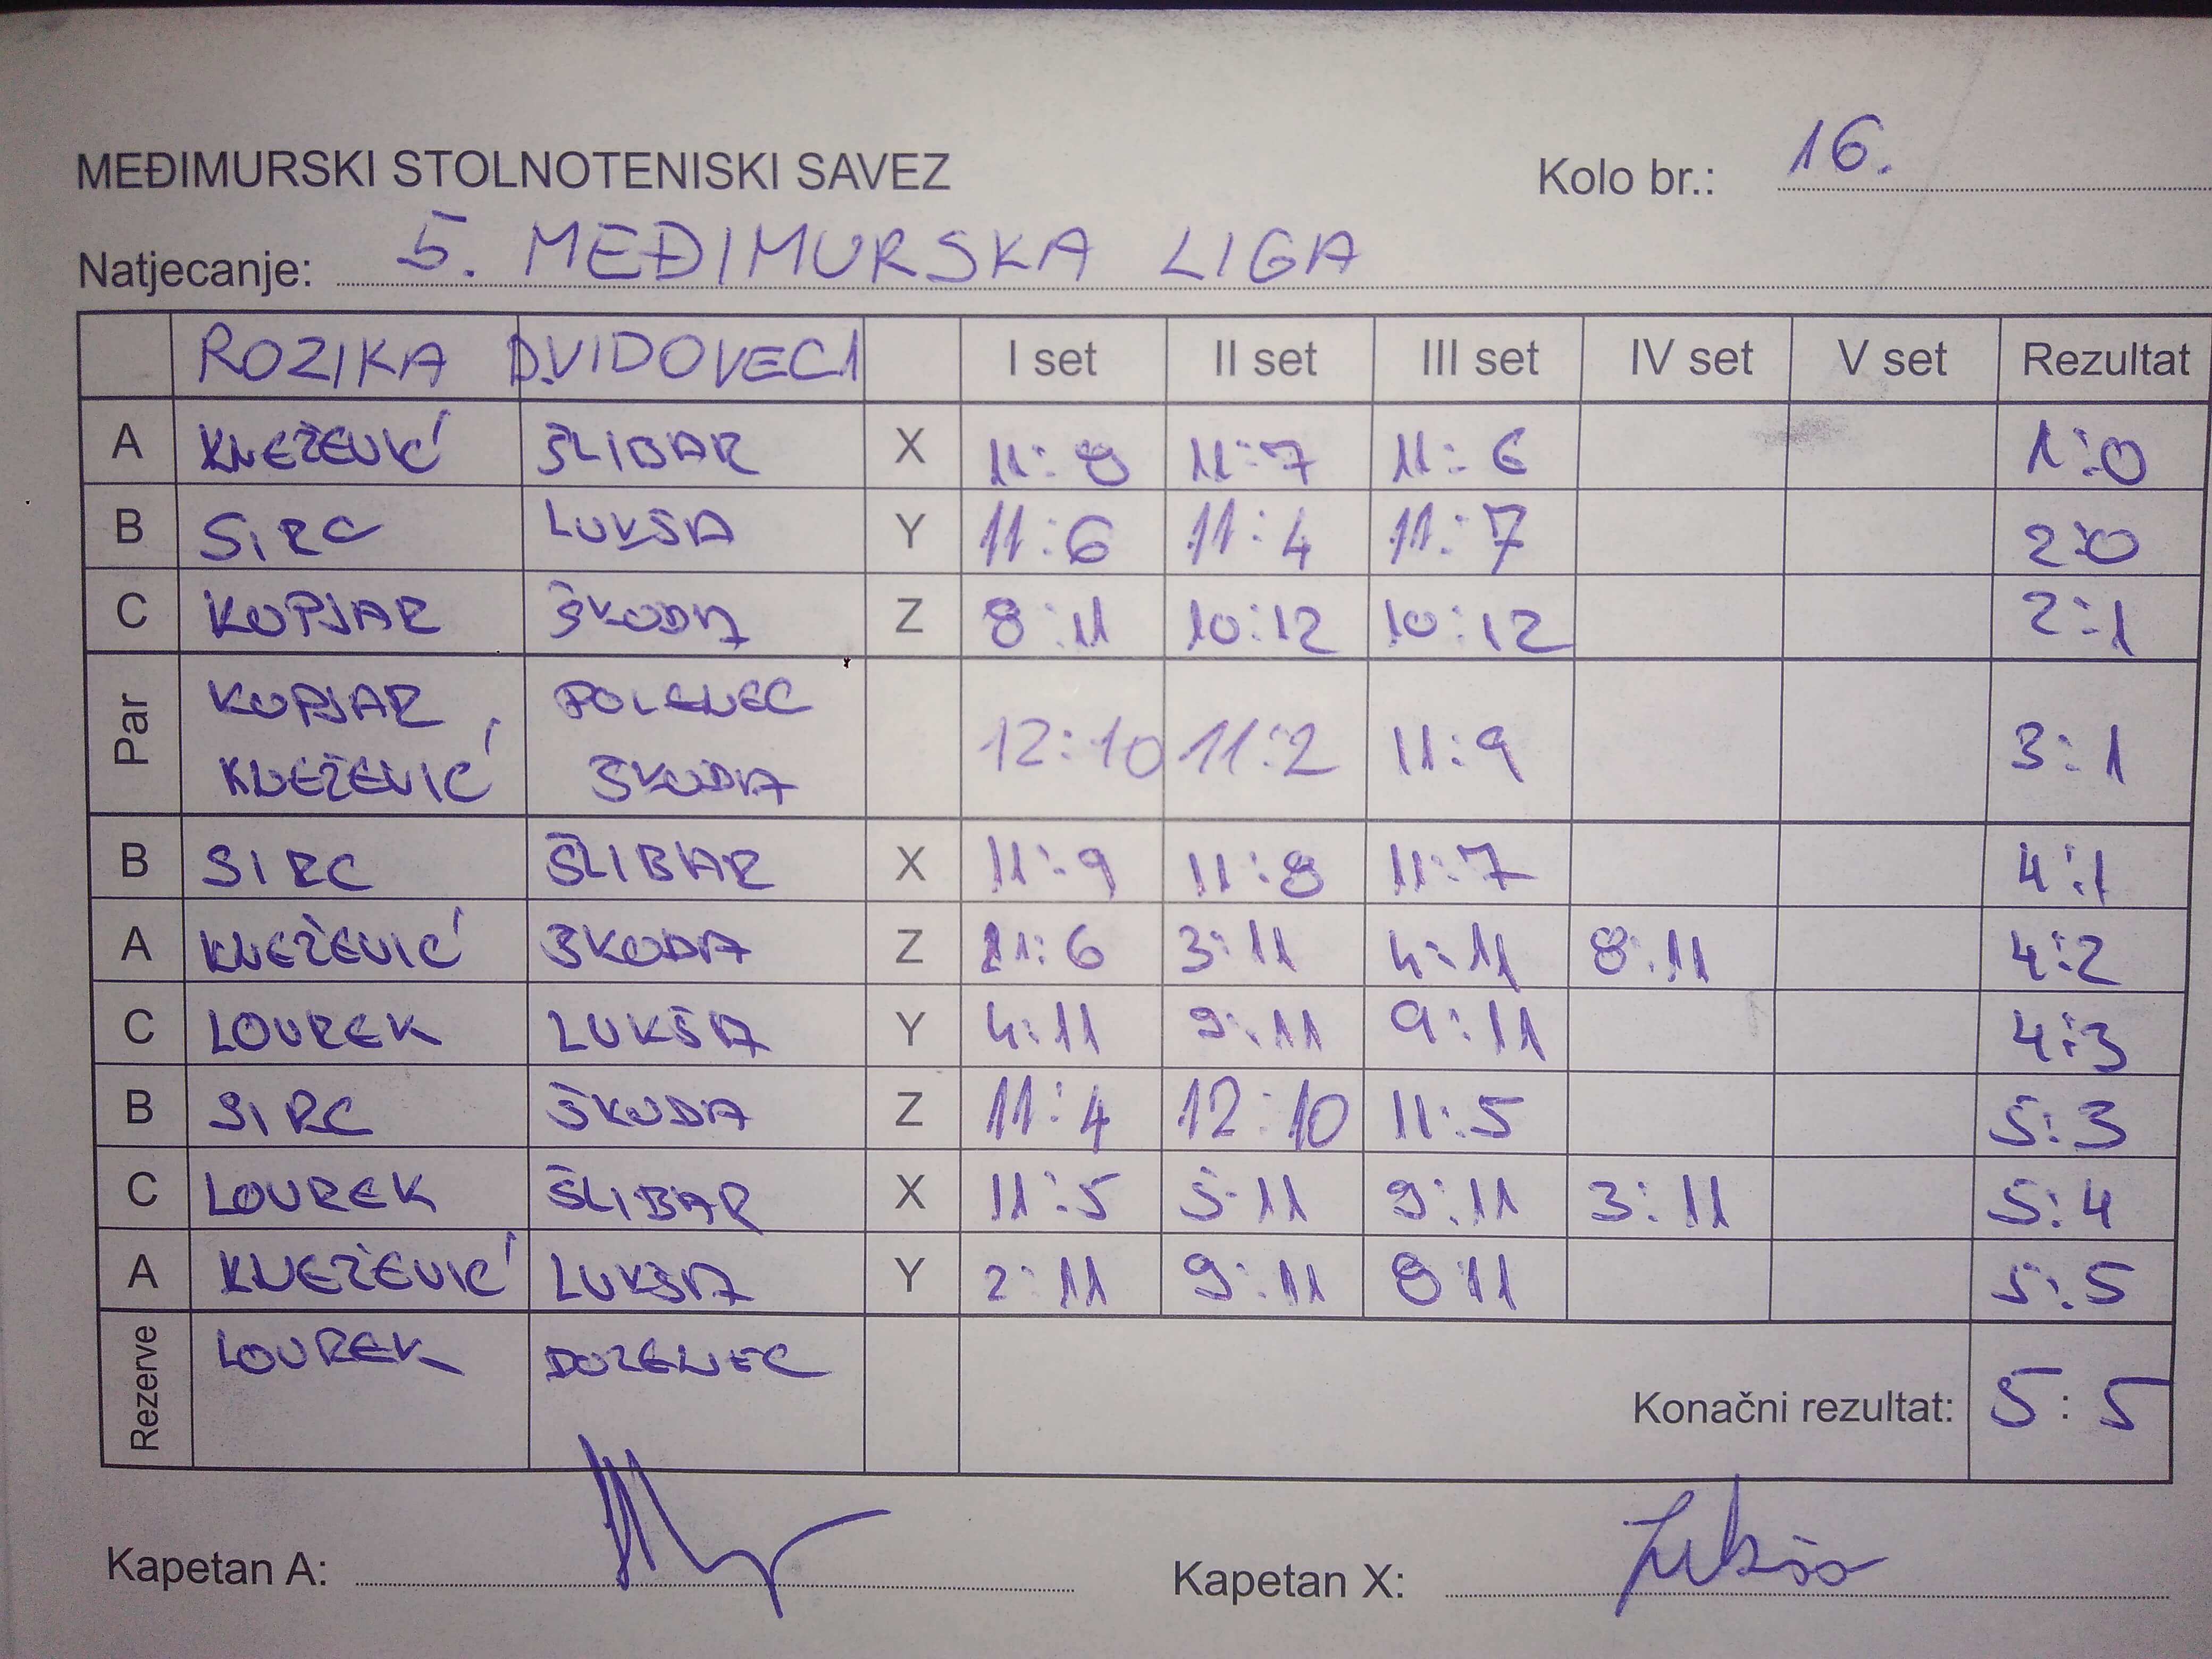 MEĐIMURSKI STOLNOTENISKI SAVEZ Kolo br.: 16.
Natjecanje: 5. MEĐIMURSKA LIGA
ROZIKA D.VIDOVEC1 I set II set III set IV set V set Rezultat
A KNEŽEVIĆ ŠLIBAR X 11:8 11:7 11:6 1:0
B SIRC LUKŠA Y 11:6 11:4 11:7 2:0
C KOPJAR ŠKODA Z 8:11 10:12 10:12 2:1
Par KOPJAR POLENEC
KNEŽEVIĆ ŠKODA 12:10 11:2 11:9 3:1
B SIRC ŠLIBAR X 11:9 11:8 11:7 4:1
A KNEŽEVIĆ ŠKODA Z 11:6 3:11 4:11 8:11 4:2
C LOUREK LUKŠA Y 4:11 9:11 9:11 4:3
B SIRC ŠKODA Z 11:4 12:10 11:5 5:3
C LOUREK ŠLIBAR X 11:5 5:11 9:11 3:11 5:4
A KNEŽEVIĆ LUKŠA Y 2:11 9:11 8:11 5:5
Rezerve LOUREK
Konačni rezultat: 5:5
Kapetan A: Kapetan X: Lukša